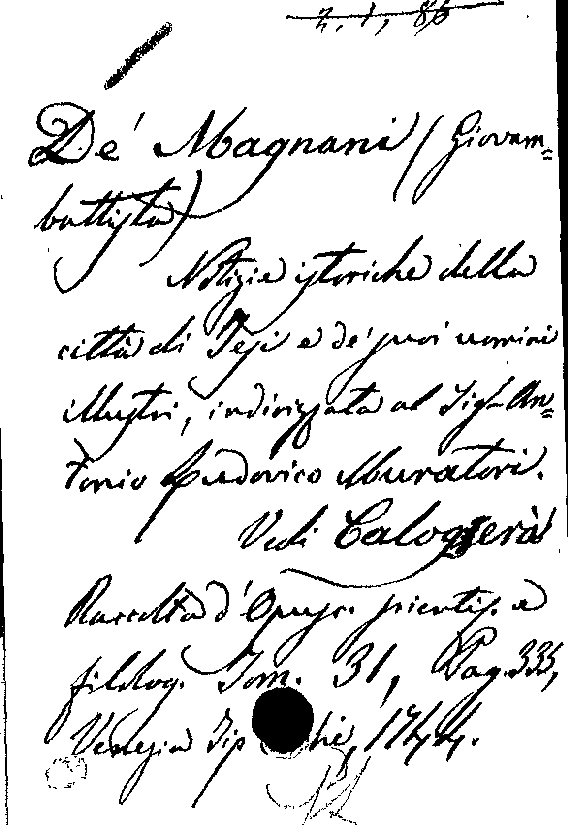 2. 1, 86
De' Magnani (Giovam=
battista)
Notizie istoriche della
città di Jesi e de' suoi uomini
illustri, indirizzata al Sigr An=
tonio Ludovico Muratori.
Vedi Calogerà
Raccolta d'Opusc. scientif. e
filolog. Tom. 31, Pag. 335,
Venezia 1744.